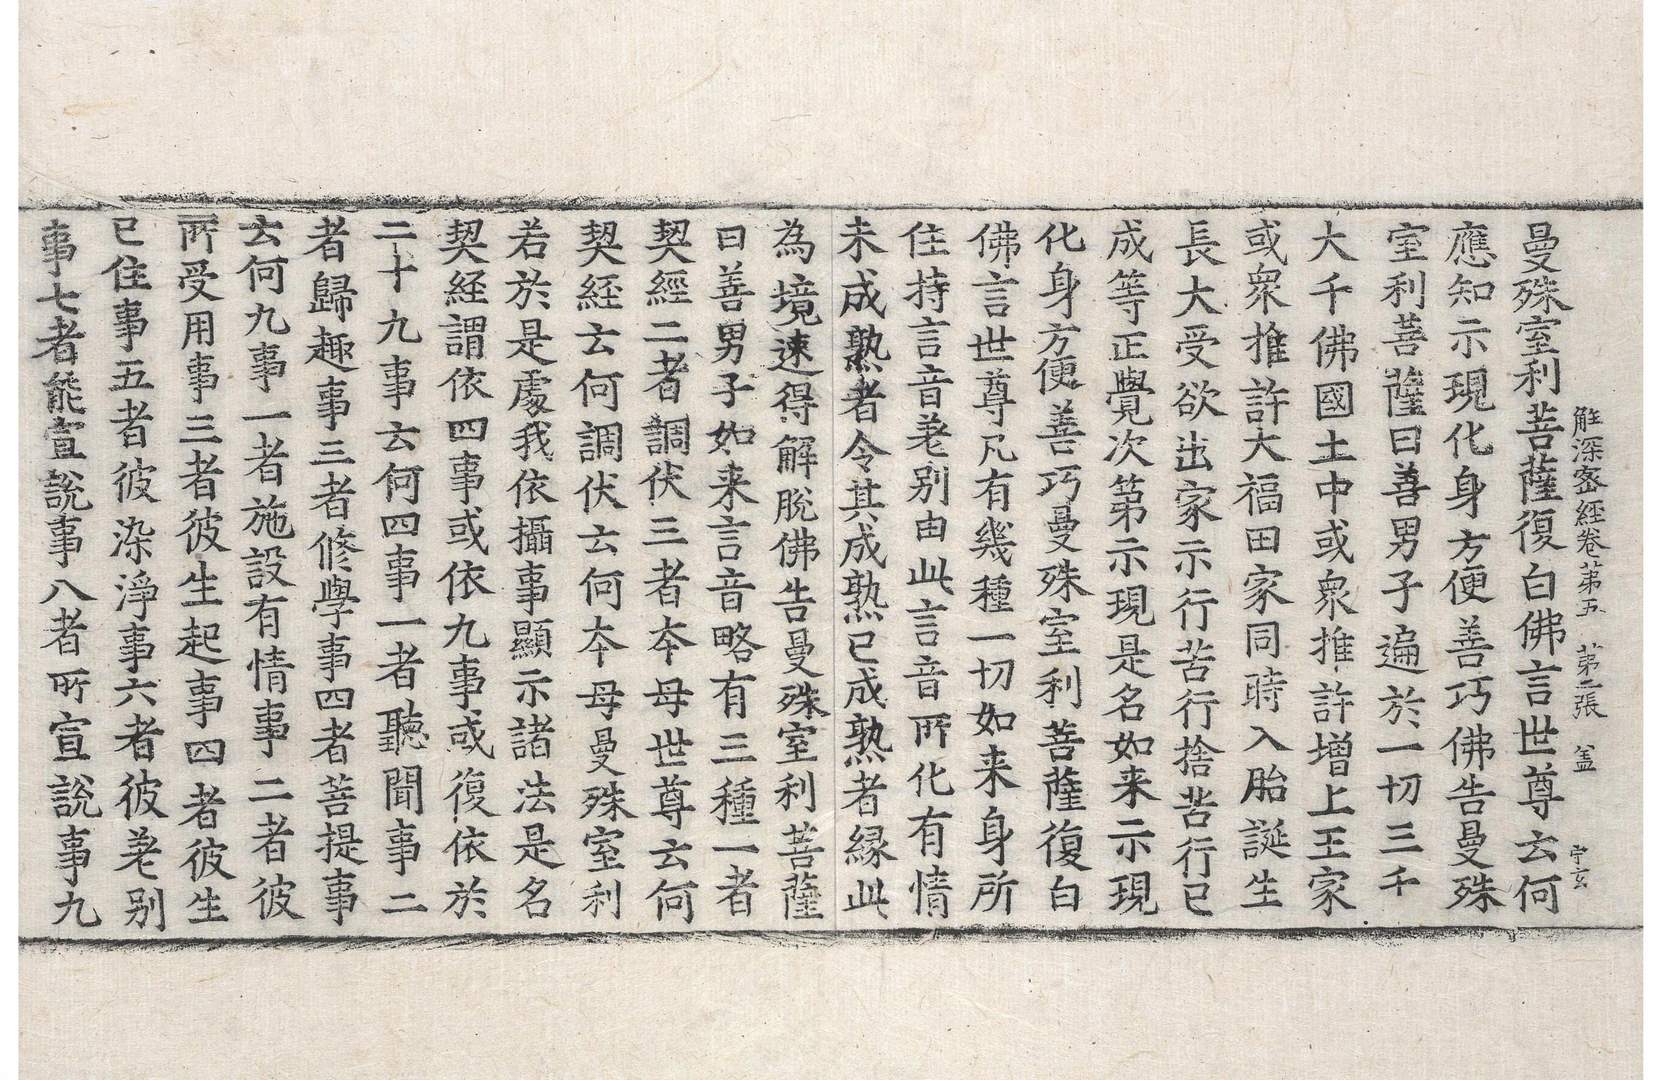 解深密経卷第五　第二張　盖　宁玄
曼殊室利菩薩復白佛言世尊云何
應知示現化身方便善巧佛告曼殊
室利菩薩曰善男子遍於一切三千
大千佛國土中或衆推許增上王家
或衆推許大福田家同時入胎誕生
長大受欲出家示行苦行捨苦行已
成等正覺次第示現是名如来示現
化身方便善巧曼殊室利菩薩復白
佛言世尊凡有幾種一切如来身所
住持言音差别由此言音所化有情
未成熟者令其成熟已成熟者縁此
為境速得解脫佛告曼殊室利菩薩
曰善男子如来言音略有三種一者
契經二者調伏三者本母世尊云何
契経云何調伏云何本母曼殊室利
若於是處我依攝事顯示諸法是名
契経謂依四事或依九事或復依於
二十九事云何四事一者聽聞事二
者歸趣事三者修學事四者菩提事
云何九事一者施設有情事二者彼
所受用事三者彼生起事四者彼生
已住事五者彼染淨事六者彼差别
事七者能宣說事八者所宣說事九